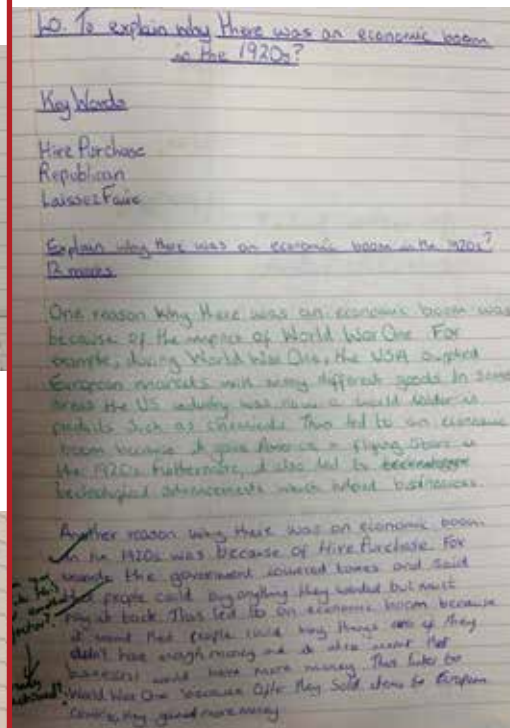 LO. To explain why there was an economic boom
in the 1920s?
Key Words
Hire Purchase
Republican
Laissez Faire
Explain why there was an economic boom in the 1920s?
12 marks
One reason why there was an economic boom was
because of the impact of World War One. For
example, during World War One, the USA supplied
European markets with many different goods. In some
areas the US industry was now a world leader in
products such as chemicals. This led to an economic
boom because it gave America a flying start in
the 1920s. Furthermore, it also led to
technological advancements which helped businesses.
Another reason why there was an economic boom
in the 1920s was because of Hire Purchase. For
the government lowered taxes and said
that people could buy anything they wanted but must
pay it back. This led to an economic boom because
it meant that people could buy things if they
didn't have enough money and it also meant that
businesses would have more money. This links to
World War One because after they sold items to European
they gained more money